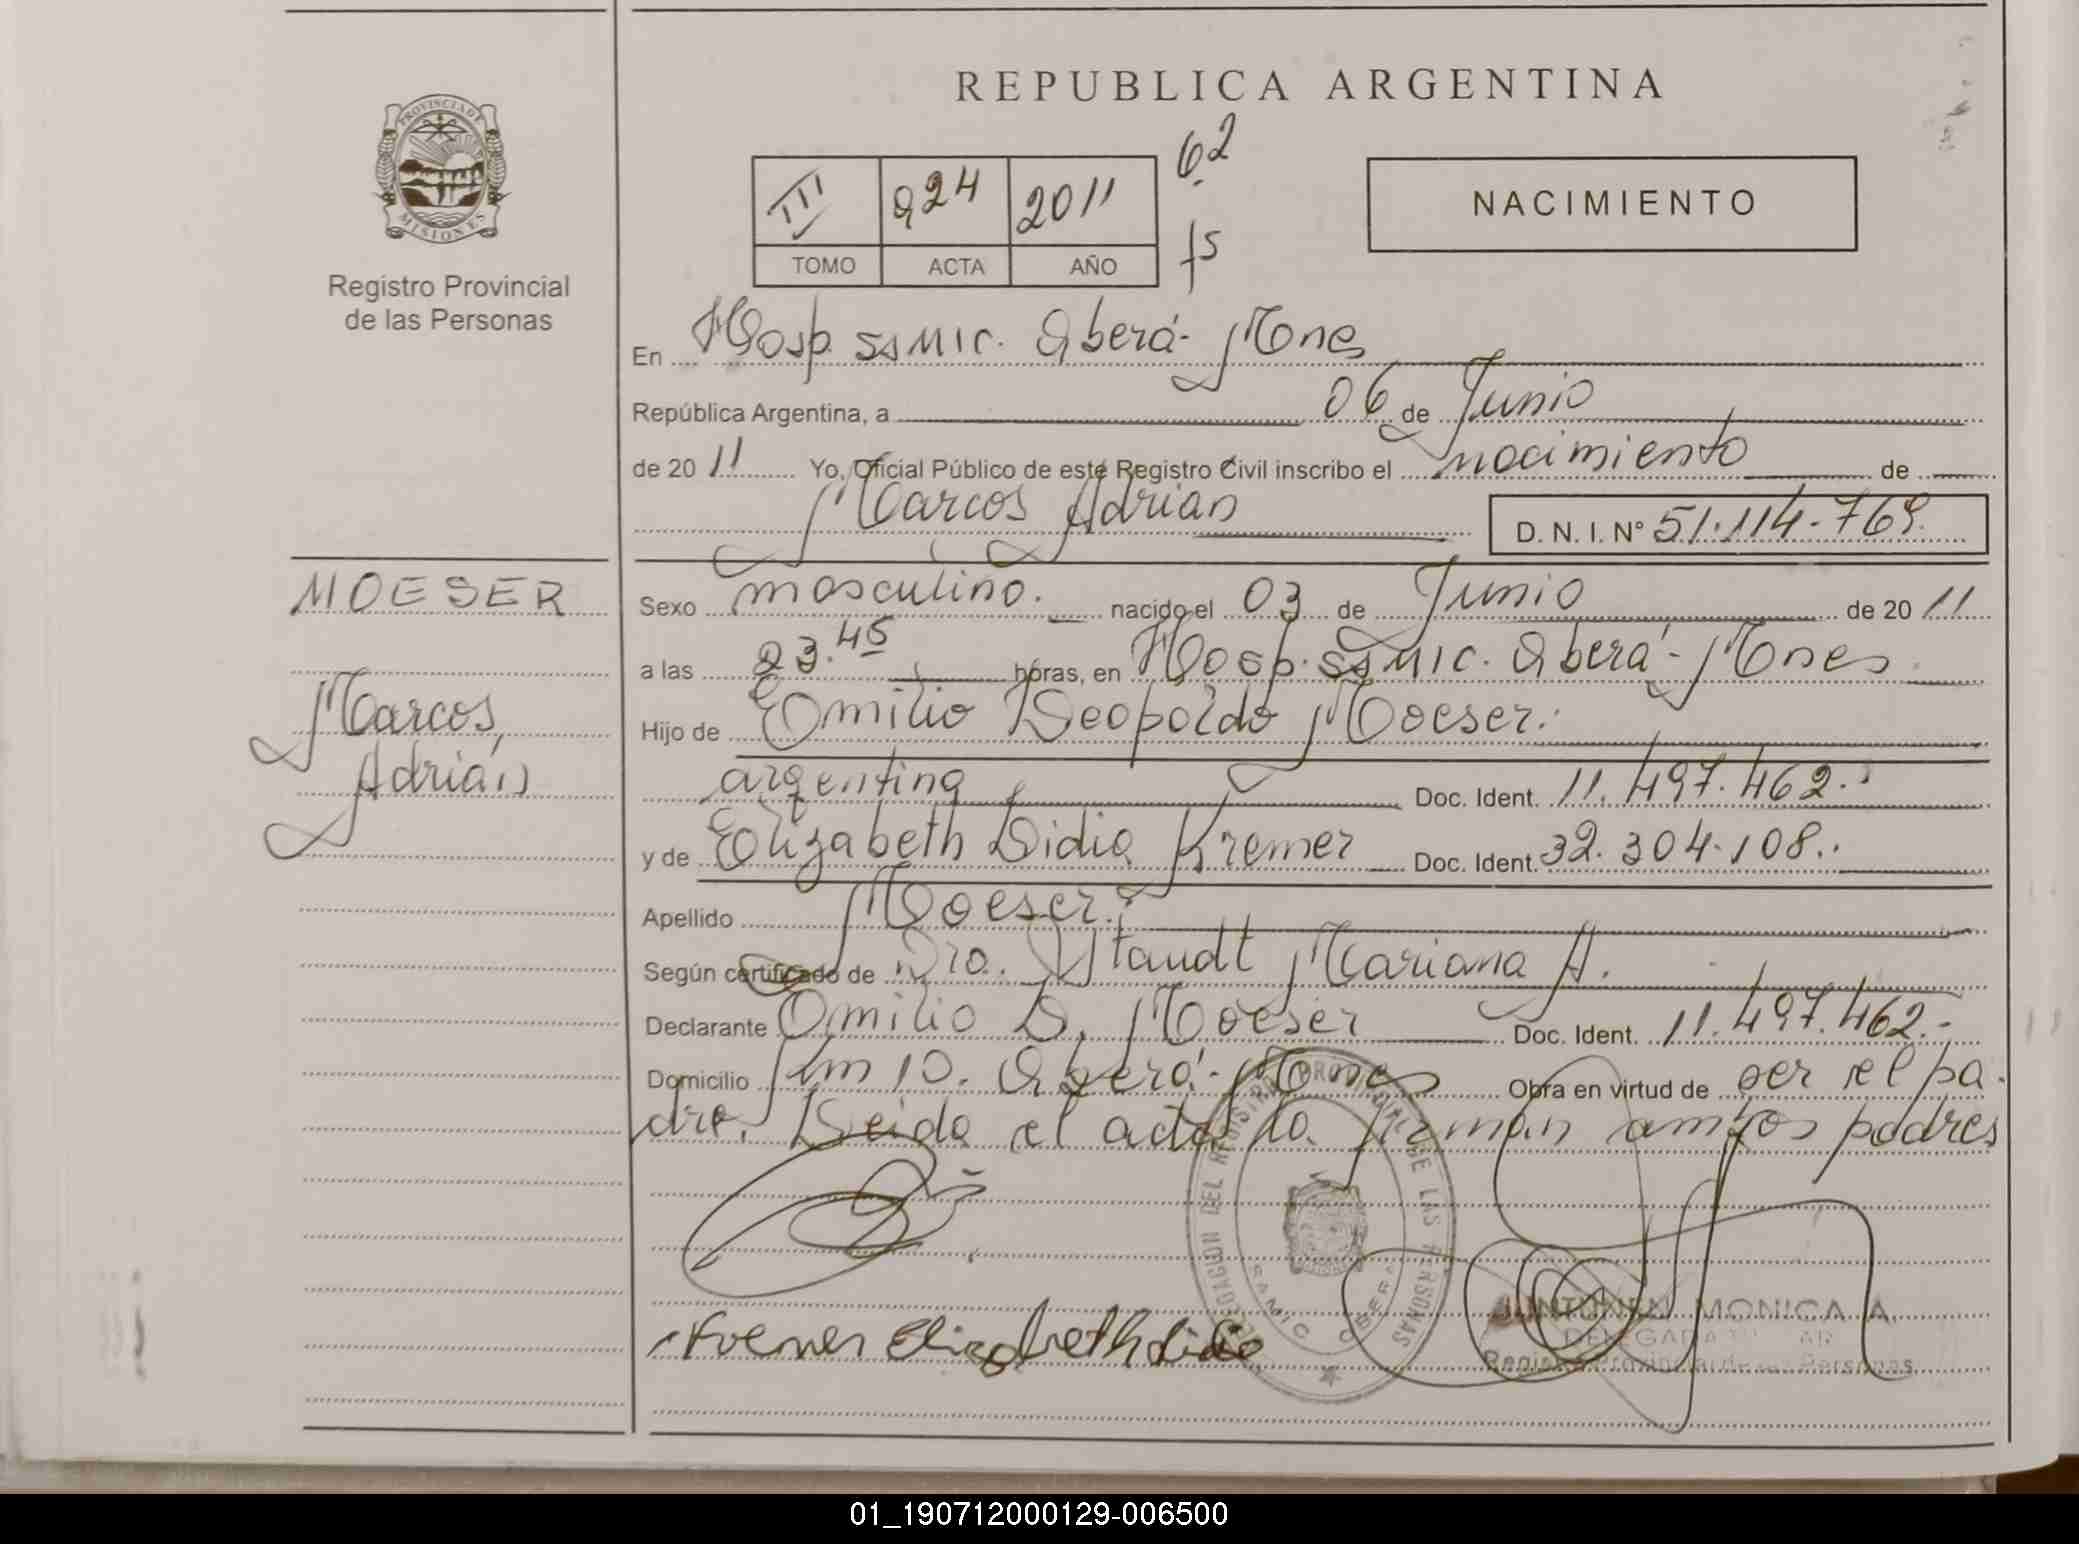 REPUBLICA ARGENTINA
PROVINCIA DE MISIONES
Registro Provincial
de las Personas
III 924 2011 62
TOMO ACTA AÑO fs
NACIMIENTO
En Hosp. SAMIC. Oberá - Mnes
República Argentina, a 06 de Junio
de 2011 Yo, Oficial Público de este Registro Civil inscribo el nacimiento de
Marcos Adrian
D. N. I. N° 51.114.769.
MOESER
Marcos,
Adrián
Sexo masculino. nacido el 03 de Junio de 2011
a las 23.45 horas, en Hosp. SAMIC. Oberá - Mnes
Hijo de Emilio Leopoldo Moeser.
argentino Doc. Ident. 11.497.462.
y de Elizabeth Lidia Kremer Doc. Ident. 32.304.108.
Apellido Moeser.
Según certificado de Dra. Staudt Mariana A.
Declarante Emilio L. Moeser Doc. Ident. 11.497.462.-
Domicilio Km 10. Oberá - Mnes Obra en virtud de ser el pa-
dre. Leida el acta la firman ambos padres
Kremer Elizabeth Lidia
DELEGACION DEL REGISTRO PROVINCIAL DE LAS PERSONAS
SAMIC OBERA
MONICA A
DELEGADA
Registro Provincial de las Personas
01_190712000129-006500